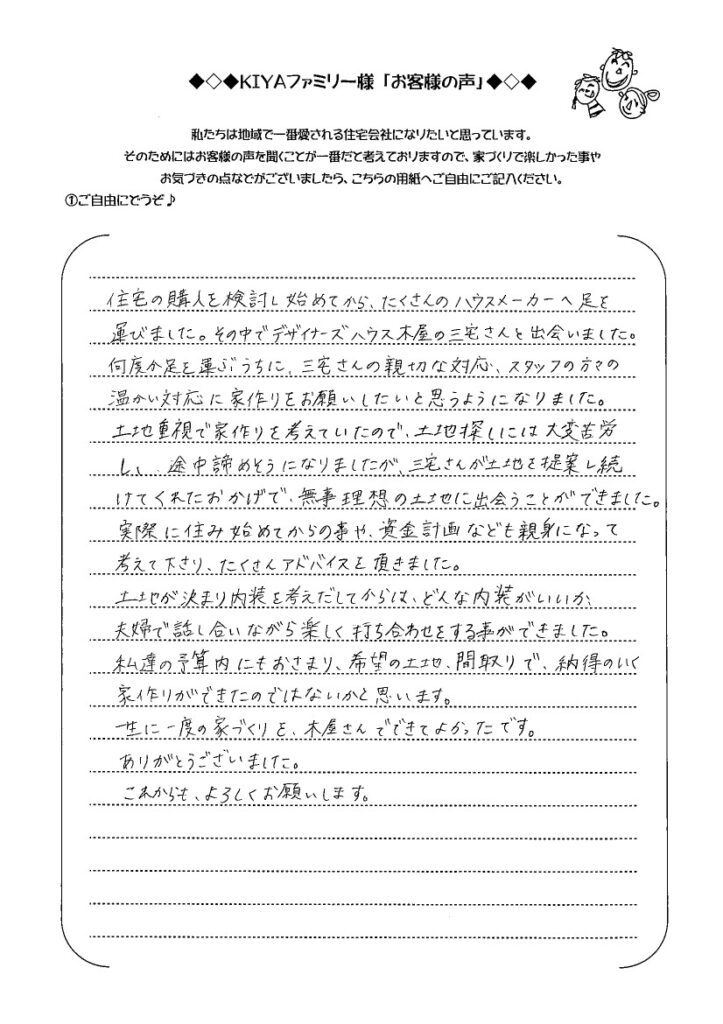 ◆◇◆KIYAファミリー様「お客様の声」◆◇◆
私たちは地域で一番愛される住宅会社になりたいと思っています。
そのためにはお客様の声を聞くことが一番だと考えておりますので、家づくりで楽しかった事や
お気づきの点などがございましたら、こちらの用紙へご自由にご記入ください。
①ご自由にどうぞ♪
住宅の購入を検討し始めてから、たくさんのハウスメーカーへ足を
運びました。その中でデザイナーズハウス木屋の三宅さんと出会いました。
何度か足を運ぶうちに、三宅さんの親切な対応、スタッフの方々の
温かい対応に家作りをお願いしたいと思うようになりました。
土地重視で家作りを考えていたので、土地探しには大変苦労
し、途中諦めそうになりましたが、三宅さんが土地を提案し続
けてくれたおかげで、無事理想の土地に出会うことができました。
実際に住み始めてからの事や、資金計画なども親身になって
考えて下さり、たくさんアドバイスを頂きました。
土地が決まり内装を考えだしてからは、どんな内装がいいか、
夫婦で話し合いながら楽しく打ち合わせをする事ができました。
私達の予算内にもおさまり、希望の土地、間取りで、納得のいく
家作りができたのではないかと思います。
一生に一度の家づくりを、木屋さんでできてよかったです。
ありがとうございました。
これからも、よろしくお願いします。